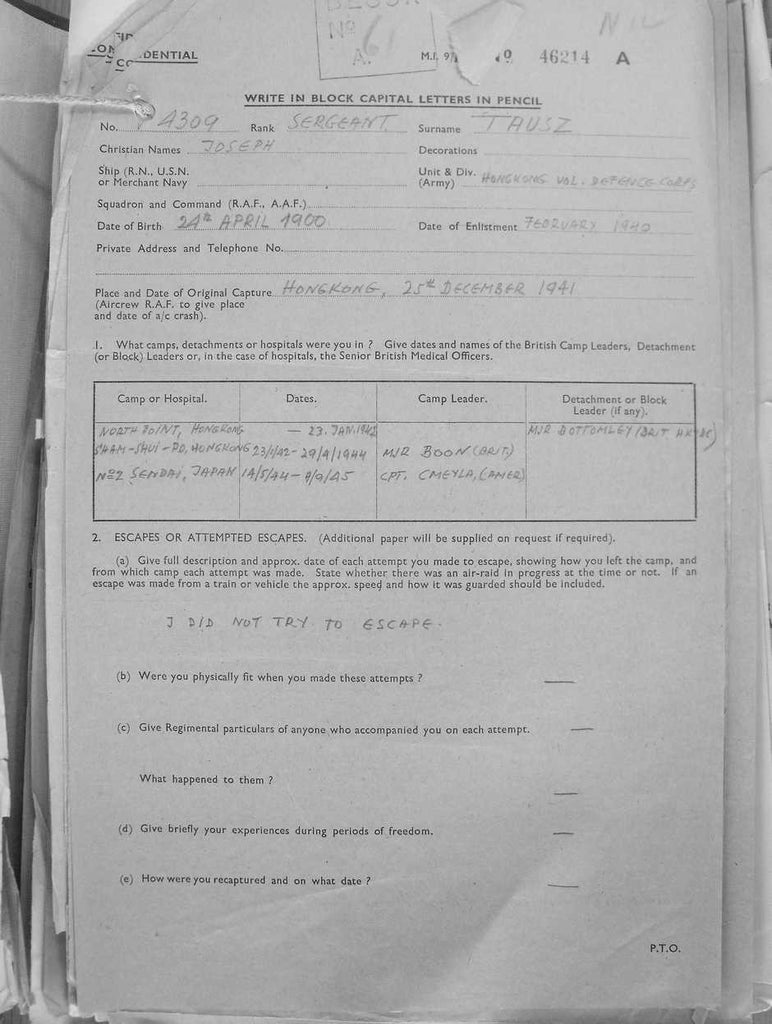 Nº
A.
NIL
CONFIDENTIAL
M.I. 9/
46214 A
WRITE IN BLOCK CAPITAL LETTERS IN PENCIL
No. 4309 Rank SERGEANT Surname TAUSZ
Christian Names JOSEPH Decorations
Ship (R.N., U.S.N. or Merchant Navy
Unit & Div. (Army) HONGKONG VOL. DEFENCE CORPS
Squadron and Command (R.A.F., A.A.F.)
Date of Birth 24th APRIL 1900 Date of Enlistment FEBRUARY
Private Address and Telephone No.
Place and Date of Original Capture HONGKONG, 25th DECEMBER 1941
(Aircrew R.A.F. to give place
and date of a/c crash).
1. What camps, detachments or hospitals were you in ? Give dates and names of the British Camp Leaders, Detachment
(or Block) Leaders or, in the case of hospitals, the Senior British Medical Officers.
Camp or Hospital. Dates. Camp Leader. Detachment or Block Leader (if any).
NORTH POINT, HONGKONG — 23. JAN. 1942 MJR BOTTOMLEY
SHAM-SHUI-PO, HONGKONG 23/1/42 - 29/4/1944 MJR BOON (BRIT.)
Nº2 SENDAI, JAPAN 14/5/44 - /9/45 CPT. CMEYLA, (AMER)
2. ESCAPES OR ATTEMPTED ESCAPES. (Additional paper will be supplied on request if required).
(a) Give full description and approx. date of each attempt you made to escape, showing how you left the camp, and
from which camp each attempt was made. State whether there was an air-raid in progress at the time or not. If an
escape was made from a train or vehicle the approx. speed and how it was guarded should be included.
I DID NOT TRY TO ESCAPE.
(b) Were you physically fit when you made these attempts ? —
(c) Give Regimental particulars of anyone who accompanied you on each attempt. —
What happened to them ? —
(d) Give briefly your experiences during periods of freedom. —
(e) How were you recaptured and on what date ? —
P.T.O.